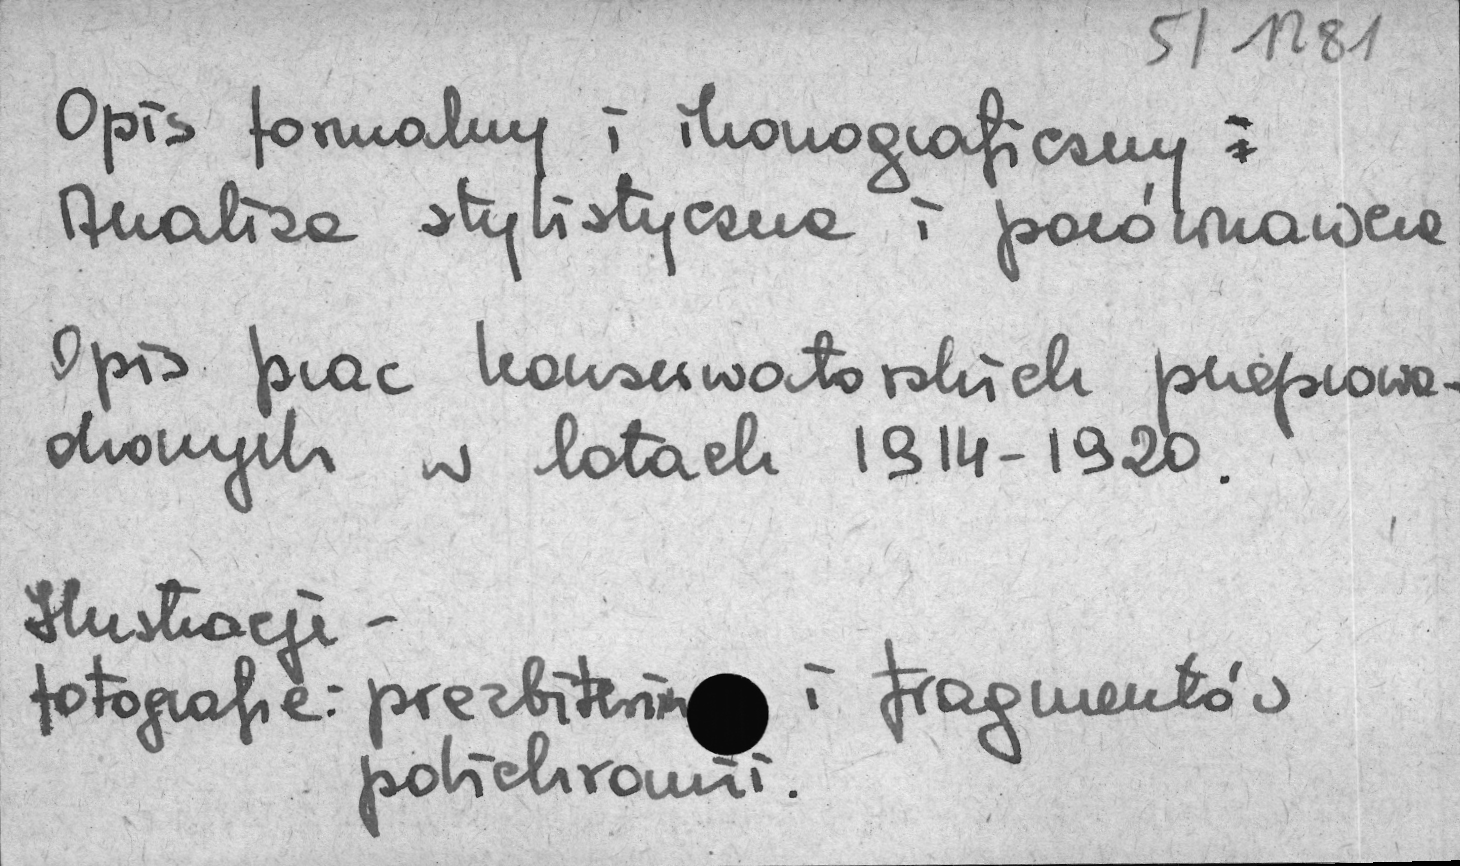 5/1281
Opis formalny i ikonograficzny
Analiza stylistyczna i porównawcza
Opis prac konserwatorskich przeprowa-
dzonych w latach 1914-1920.
Ilustracje -
fotografie: prezbiterium i fragmentów
polichromii.